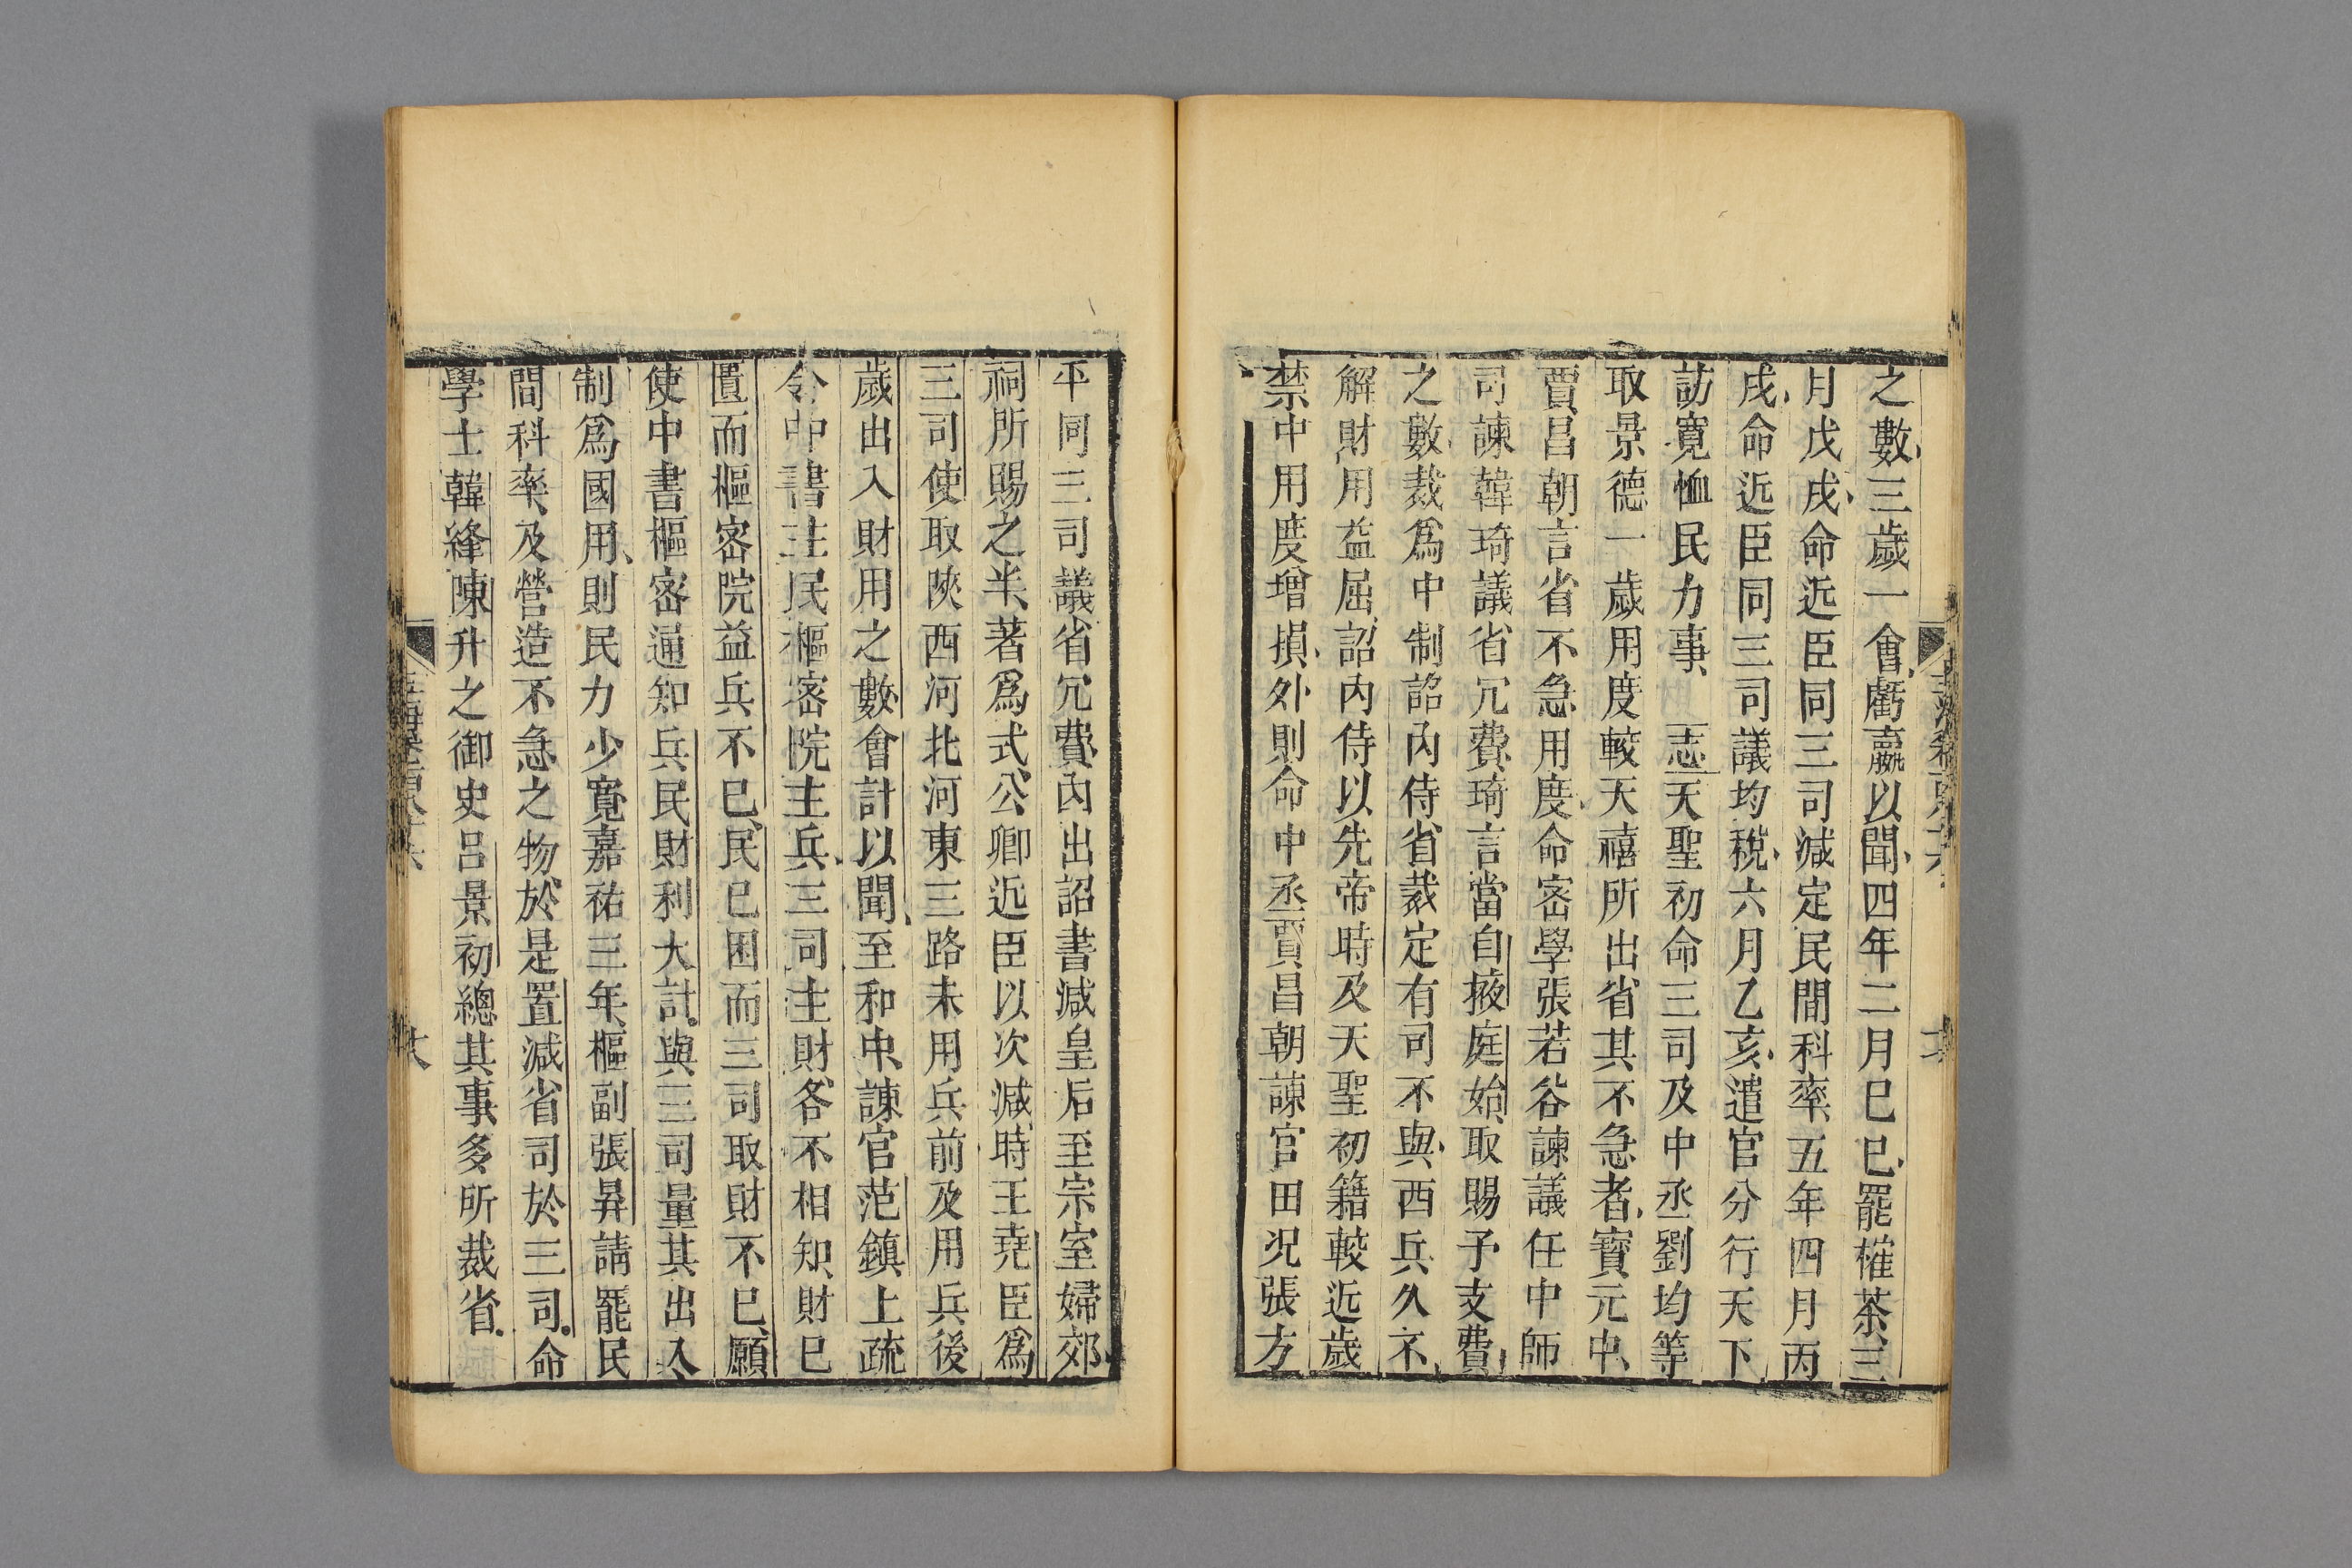 之數三歲一會虧贏以聞四年二月巳巳罷榷茶三
月戊戌命近臣同三司減定民間科率五年四月丙
戌命近臣同三司議均稅六月乙亥遣官分行天下
訪寬恤民力事志天聖初命三司及中丞劉均等
取景德一歲用度較天禧所出省其不急者寶元中
賈昌朝言省不急用度命宻學張若谷諫議任中師
司諫韓琦議省冗費琦言當自掖庭始取賜予支費
之數裁爲中制詔內侍省裁定有司不與西兵久不
解財用益屈詔內侍以先帝時及天聖初籍較近歲
禁中用度增損外則命中丞賈昌朝諫官田況張方
平同三司議省冗費內出詔書減皇后至宗室婦郊
祠所賜之半著爲式公卿近臣以次減時王堯臣爲
三司使取陝西河北河東三路未用兵前及用兵後
歲出入財用之數會計以聞至和中諫官范鎮上疏
令中書主民樞宻院主兵三司主財各不相知財巳
匱而樞宻院益兵不巳民巳困而三司取財不巳願
使中書樞宻通知兵民財利大計與三司量其出入
制爲國用則民力少寬嘉祐三年樞副張昇請罷民
間科率及營造不急之物於是置減省司於三司命
學士韓絳陳升之御史呂景初總其事多所裁省